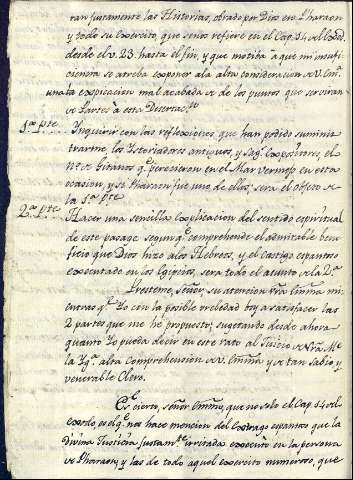 tan justamente las Historias, obrado por Dios en Pharaon
y todo su exercito, que senos refiere en el Cap. 14 del Exod.
desde el v. 23. hasta el fin, y que motiba à que mi insufi
ciencia se atreba exponer ala alta consideracion de V. Em.ª
una tal explicacion mal acabada de los puntos que serviran
de Partes à esta Disertac.n
1.ª p.te Inquirir con las reflexiones que han podido suminis
trarme, los Historiadores antiguos, y Sag.s Expositores, el
N.º de Gitanos q.e perecieron en el Mar vermejo en esta
ocasion, y si Pharaon fue uno de ellos, sera el objeto de
la 1.ª P.te
2.ª P.te Hacer una sencilla explicacion del sentido espiritual
de este pasage segun q.e comprehende el admirable bene
ficio que Dios hizo alos Hebreos, y el castigo espantoso
executado en los Egipcios, sera todo el asunto de la 2.ª
Presteme, señor, su atencion V.ra Emma mi
entras q.e Yo con la posible brebedad boy a satisfacer las
2 partes que me hè propuesto; sugetando desde ahora
quanto Yo pueda decir en este rato al Juicio de N.ra M.e
la Yg.ª alta comprehension de V. Emma y de tan Sabio y
venerable Clero.
Es cierto, señor Emmo, que no solo el Cap. 14 del
exodo, es el q.e nos hace mencion del Estrago espantoso que la
Divina Justicia justam.te irritada executò en la persona
de Pharaon, y las de todo aquel exercito numeroso, que